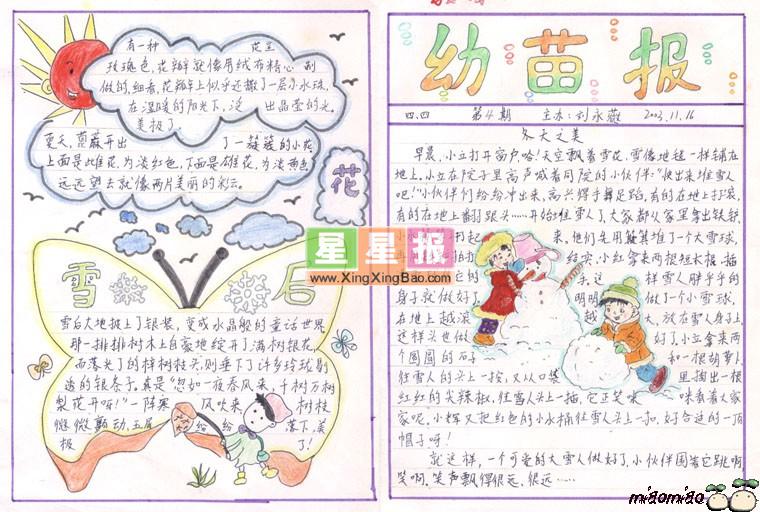 有一种 花呈
玫瑰色,花瓣就像用绒布精心制
做的,细看,花瓣上似乎还撒了一层小水珠,
在温暖的阳光下,泛 出晶莹的光,
美极了.
夏天,葛薇开出 了一簇簇的小花,
上面是雌花,为淡红色,下面是雄花,为淡黄色,
远远望去就像两片美丽的彩云.
花
雪 后
雪后大地披上了银装,变成水晶般的童话世界.
那一排排树木上自豪地绽开了满树银花,
而落光了的梓树枝头,则垂下了许多玲珑剔
透的银条子,真是“忽如一夜春风来,千树万树
梨花开呀!”一阵寒 风吹来, 树枝
微微颤动,玉屑 纷纷 落下,美
极 了!
星星报
www.XingXingBao.com
幼苗报
四、四 第4期 主办:刘永薇 2003.11.16
冬天之美
早晨,小立打开窗户,哈!天空飘着雪花,雪像地毯一样铺在
地上,小立在院子里高声喊着同院的小伙伴:“快出来堆雪人
吧!”小伙伴们纷纷冲出来,高兴得手舞足蹈,有的在地上打滚,
有的在地上翻跟头……开始堆雪人了,大家都从家里拿出铁锹,
来,他们先用 堆了一个大雪球,
再 红 小红拿来两根短木棍,插
样雪人胖乎乎的
身子就做好了 明明 做了一个小雪球,
在地上越滚 越 大,放在雪人身子上
这样头也做 好了,小立拿来两
个圆圆的石子 和一根胡萝卜
往雪人的头上一按,又从口袋 里掏出一根
红红的尖辣椒,往雪人头上一插,它正笑咪 咪看着大家
家呢,小辉又把红色的小水桶往雪人头上一扣,好合适的一顶
帽子呀!
就这样,一个可爱的大雪人做好了,小伙伴围着它跳啊
笑啊,笑声飘得很远,很远……
miaomiao